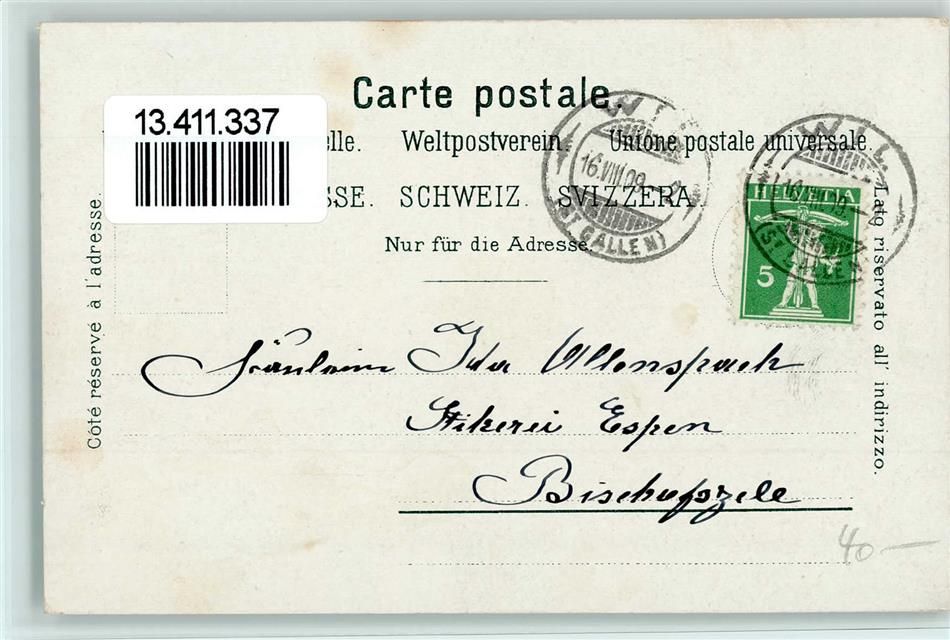 Carte postale.
13.411.337
elle. Weltpostverein. Unione postale universale.
SSE. SCHWEIZ. SVIZZERA.
Nur für die Adresse.
Côté réservé à l'adresse.
Lato riservato all' indirizzo.
WIL
16.VIII.09.
(ST. GALLEN)
WIL
16.VIII.09.
(ST. GALLEN)
HELVETIA
5
Fräulein Ida Allenspach
Stikerei Espen
Bischofszele
40 —